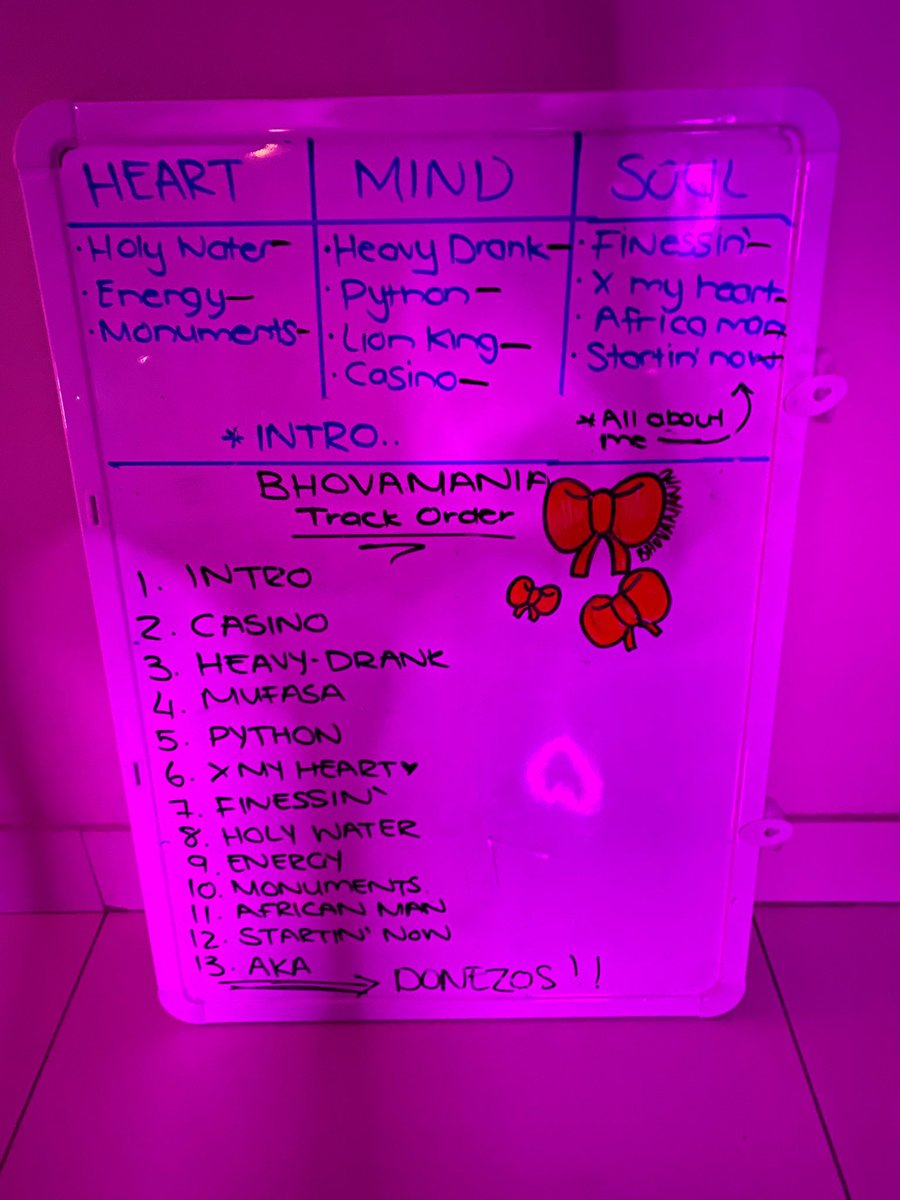 HEART
MIND
SOUL
·Holy Water-
·Energy-
·Monuments-
·Heavy Drank-
·Python-
·Lion King-
·Casino-
·Finessin'-
·X my heart-
·Startin' now
* INTRO..
*All about
me
BHOVAMANIA
Track Order
BHOVAMANIA
1. INTRO
2. CASINO
3. HEAVY-DRANK
4. MUFASA
5. PYTHON
6. X MY HEART♥
7. FINESSIN'
8. HOLY WATER
9. ENERGY
10. MONUMENTS
11. AFRICAN MAN
12. STARTIN' NOW
13. AKA
DONEZOS!!